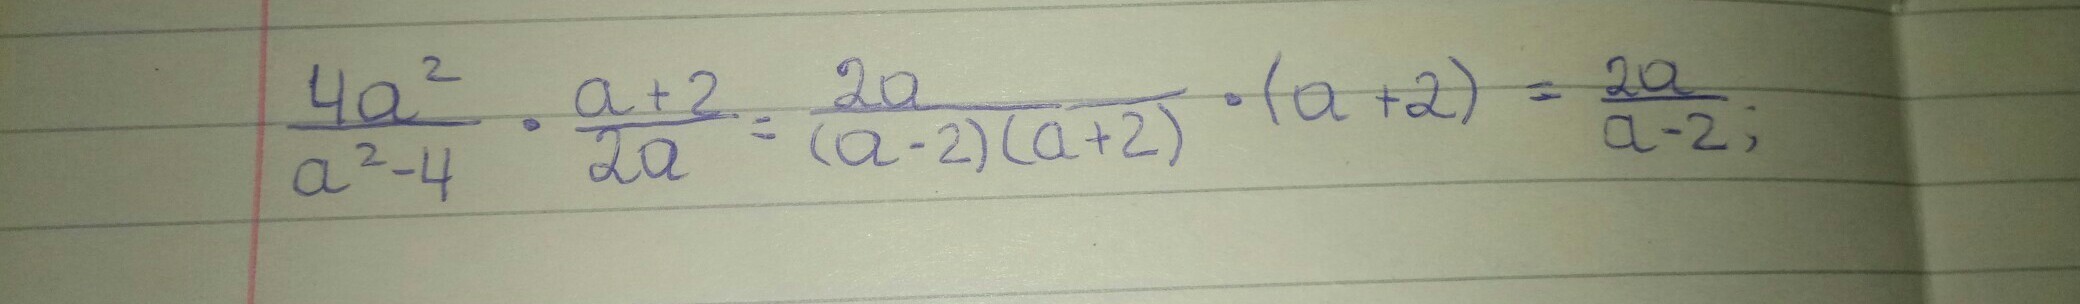 4a²/(a²-4) • (a+2)/(2a) = 2a/((a-2)(a+2)) • (a+2) = 2a/(a-2);